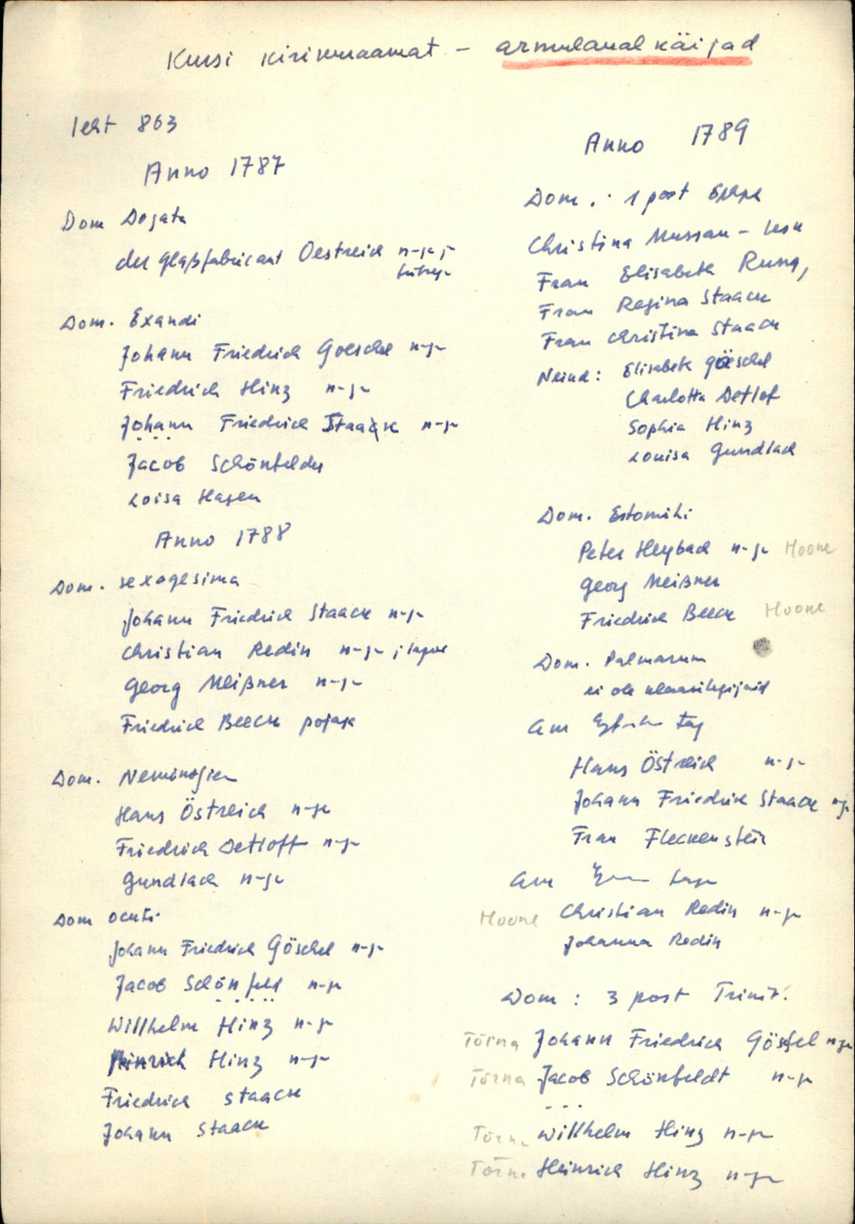 Kursi kirikuraamat - armulaual käijad
leht 863
Anno 1787
Dom Rogata
der Glaßfabricant Oestreich n-ga
Dom. Exandi
Johann Friedrich Goeschel n-ga
Friedrich Hinz n-ga
Johann Friedrich Staack n-ga
Jacob Schönfelder
Loisa Hagen
Anno 1788
Dom. sexagesima
Johann Friedrich Staack n-ga
Christian Redin n-ga;
Georg Meißner n-ga
Friedrich Beeck pojaga
Dom.
Hans Östreich n-ga
Friedrich Detloff n-ga
Gundlach n-ga
Dom oculi
Johann Friedrich Göschel n-ga
Jacob Schönfeld n-ga
Willhelm Hinz n-ga
Heinrich Hinz n-ga
Friedrich Staack
Johann Staack
Anno 1789
Dom. 1 post
Christina
Frau Elisabeth
Frau Regina Staack
Frau Christina Staack
Neind: Elisabeth Göeschel
Charlotta Detlof
Sophia Hinz
Louisa Gundlach
Dom. Estomihi
Peter Heybach n-ga Hoone
Georg Meißner
Friedrich Beeck Hoone
Dom. Palmarum
ei ole
am tag
Hans Östreich n-ga
Johann Friedrich Staack n-ga
Frau Fleckenstein
am
Hoone Christian Redin n-ga
Johanna Redin
Dom: 3 post Trinit.
Tõrna Johann Friedrich Göschel n-ga
Tõrna Jacob Schönfeldt n-ga
Tõrna Willhelm Hinz n-ga
Tõrna Heinrich Hinz n-ga